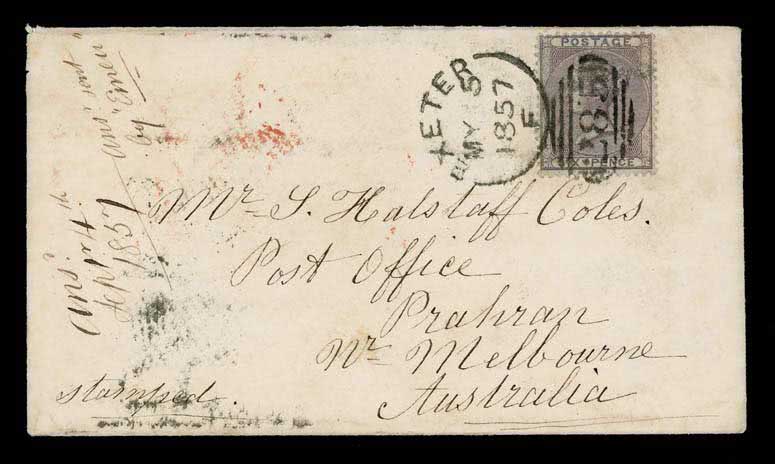 POSTAGE
SIX PENCE
EXETER
MY 5
1857
F
285
Mr. S. Halstaff Coles.
Post Office
Prahran
Nr. Melbourne
Australia
stamped.
Ans.
Sept 4th
1857
Ans' sent
by "Emeu"